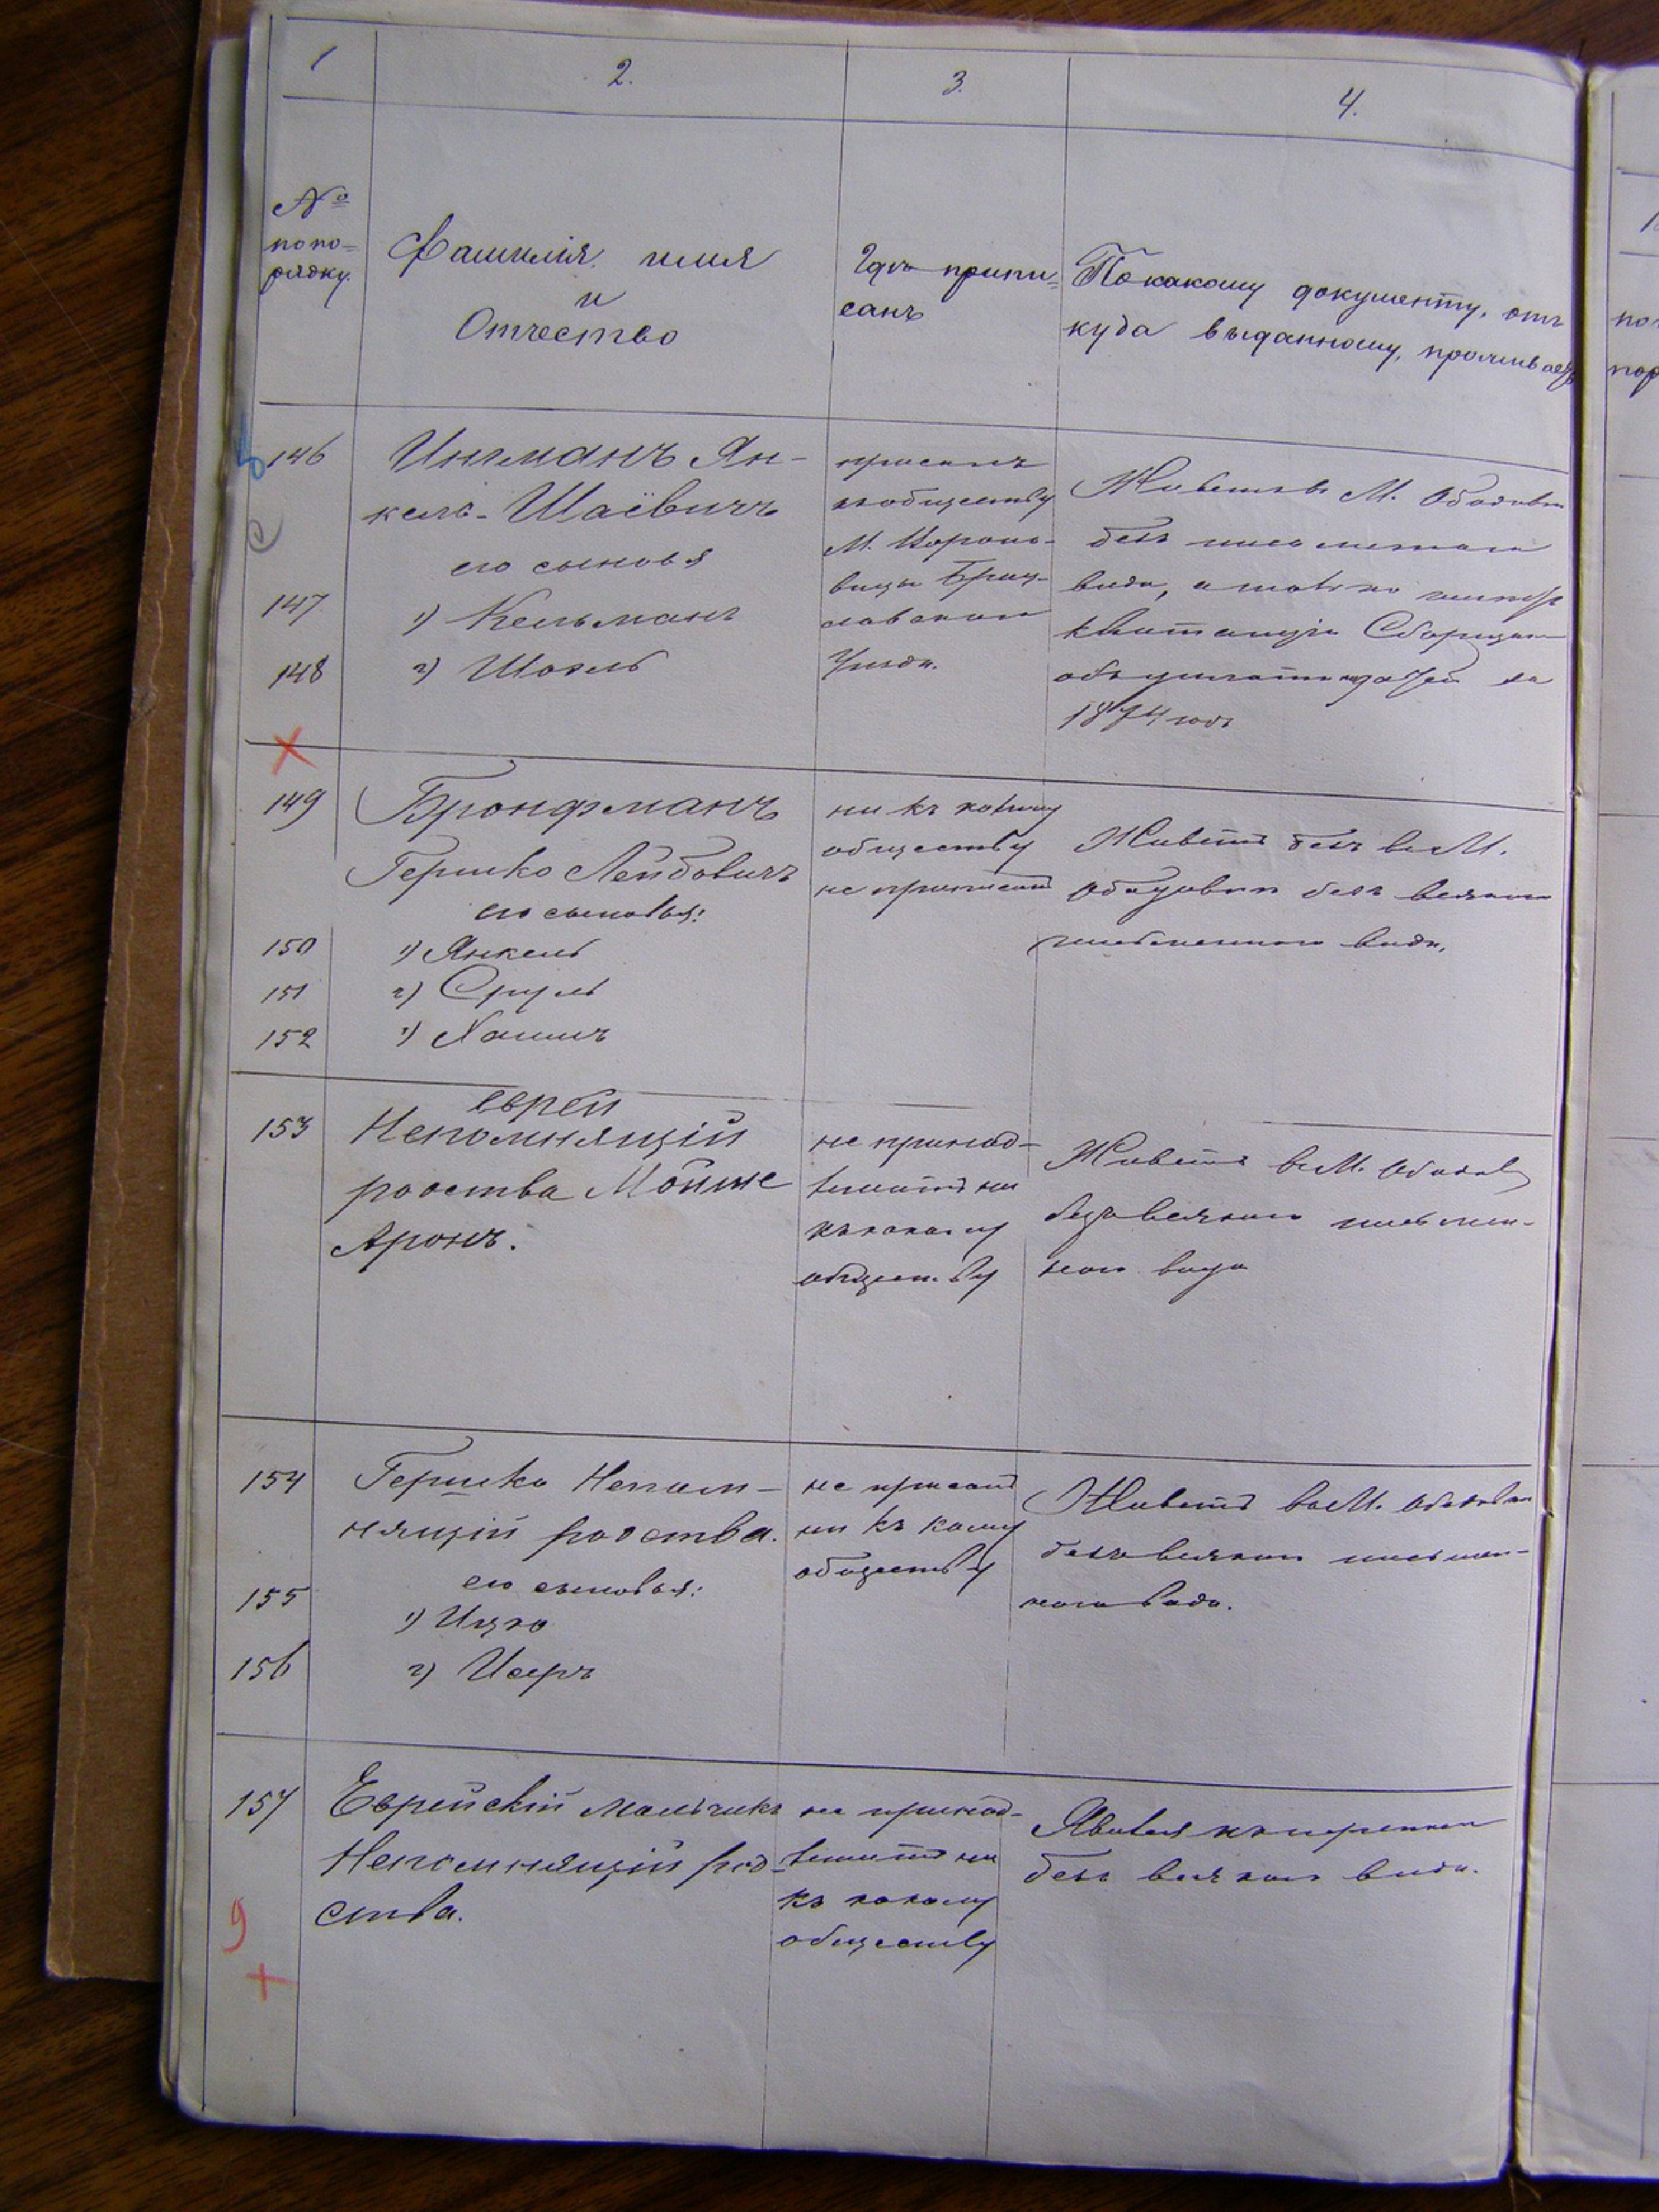 1
2.
3.
4.
№
по по=
рядку.
Фамилія, имя
и
Отчество
Гдѣ припи=
санъ
По какому документу, отъ
куда выданному, проживаетъ
146
Ингманъ Ян-
кель-Шаёвичъ
его сыновья
147
1) Кельманъ
148
2) Шоель
къ обществу
М.
вицы Брац-
лавскаго
Уѣзда.
Живетъ въ М. Ободовкѣ
безъ письменнаго
вида, а только
квитанція Сборщика
объ уплатѣ податей за
1874 годъ
149
Бронфманъ
Гершко Лейбовичъ
его сыновья:
150
1) Янкель
151
2) Сруль
152
3) Хаимъ
ни къ какому
обществу
не приписанъ
Живетъ безъ въ М.
Ободовки безъ всякаго
письменнаго вида.
153
еврей
Непомнящій
родства Мойше
Аронъ.
не принад-
лежитъ ни
къ какому
обществу
Живетъ въ М. Ободов
безъ всякаго письмен-
наго вида
154
Гершко Непом-
нящій родства.
его сыновья:
155
1) Ицко
156
2) Исеръ
не приписанъ
ни къ кому
обществу
Живетъ въ М. Ободовки
безъ всякаго письмен-
наго вида.
157
Еврейскій мальчикъ
Непомнящій род-
ства.
не принад-
лежитъ ни
къ какому
обществу
Явился къ переписи
безъ всякаго вида.
9